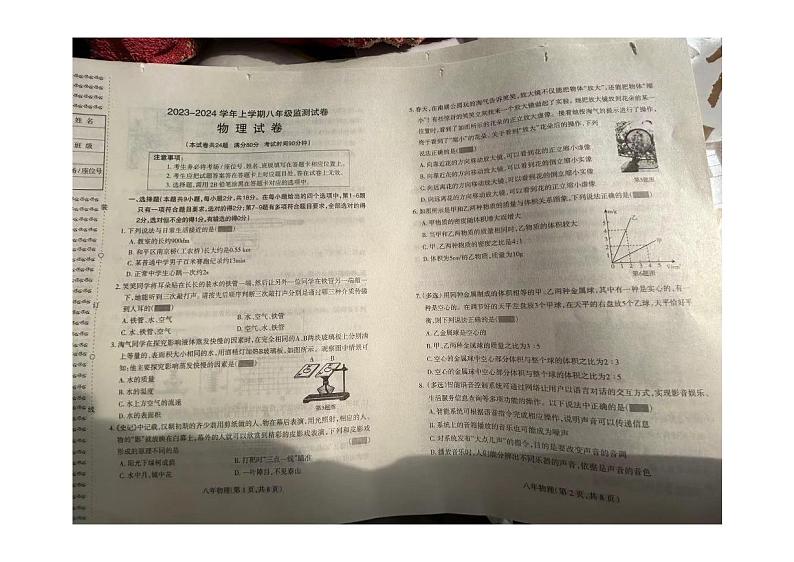 姓名
班级
考场/座号
装
订
线
2023-2024学年上学期八年级监测试卷
物理试卷
(本试卷共24题 满分80分 考试时间90分钟)
注意事项:
1. 考生务必将考场/座位号、姓名、班级填写在答题卡相应位置上。
2. 考生应把试题答案答在答题卡上对应题目处,答在试卷上无效。
3. 选择题,请用2B铅笔涂黑在对应的选项中。
一、选择题(本题共9小题,每小题2分,共18分。在每小题给出的四个选项中,第1-6题
只有一项符合题目要求,第7-9题有多项符合题目要求,全部选对的得
2分,选对但不全的得1分,有错选的得0分)
1. 下列说法与日常生活接近的是(
A. 教室的长约900dm
B. 和平区南京桥(工农桥)长大约是0.55 km
C. 某普通中学男子百米赛跑纪录约13min
D. 正常中学生心跳一次约2s
2. 笑笑同学将耳朵贴在长长的装水的铁管一端,然后让另外一位同学在铁管另一端敲一
下,她能听到三次敲打声。请按先后顺序判断三次敲打声分别是通过哪三种介质传播
到人耳的(
A. 铁管、水、空气
B. 水、铁管、空气
C. 水、铁管、空气
3. 淘气同学在探究影响液体蒸发快慢的因素时,在完全相同的A、B两块玻璃板上分别滴
上等量的、表面积大小相同的水,用酒精灯加热B玻璃板,如图所示。观察图中情景可
知:他主要探究影响蒸发快慢的因素是(
A B
A. 水的质量
B. 水的温度
C. 水上方空气的流速
D. 水的表面积
第3题图
4. 《史记》中记载,汉朝初期的齐少翁用剪纸做的人、物在幕后表演,用光照射,相应的人、
物的“影”就放映在白幕上,幕外的人就可以欣赏到精彩的皮影戏表演,下列和皮影戏
形成的原理不同的是
A. 阳光下绿树成荫
B. 打靶时“三点一线”瞄准
C. 水中月,镜中花
D. 一叶障目,不见泰山
八年物理(第1页,共8页)
5. 春天,在南湖公园玩的淘气告诉笑笑,放大镜不仅能把物体“放大”,还能把物体“缩
说法正确的是(
A. 向靠近花的方向移动放大镜,可以观察到花朵的正立缩小虚像
B. 向靠近花的方向移动放大镜,可以观察到花朵的倒立缩小实像
C. 向远离花的方向移动放大镜,可以观察到花朵的正立缩小虚像
D. 向远离花的方向移动放大镜,可以观察到花朵的倒立缩小实像
第5题图
6. 如图所示是甲和乙两种物质的质量与体积关系图像。下列说法正确的是(
A. 甲物质的密度随体积增大而增大
B. 当甲和乙两物质的质量相同时,乙物质的体积较大
C. 甲、乙两种物质的密度之比是4:1
m/g
甲
乙
0 1 2 3 4 5 V/cm³
第6题图
7. (多选)用同种金属制成的体积相等的甲、乙两种金属球,其中有一种是实心的,有一
种是空心的。在调节好的天平左盘放3个甲球,在天平的右盘放5个乙球,天平恰好平
衡,则下列说法正确的是(
A. 乙金属球是空心的
B. 甲、乙两种金属球的质量之比为3:5
C. 空心的金属球中空心部分体积与整个球的体积之比为2:3
D. 空心的金属球中空心部分体积与整个球的体积之比为2:5
8. (多选)智能语音控制系统可通过网络让用户以语言对话的交互方式,实现影音娱乐、
生活服务信息查询等多项功能的操作。以下说法中正确的是(
A. 智能系统可根据语音指令完成相应操作,说明声音可以传递信息
B. 系统上的音源播放的音乐也可能成为噪声
C. 对系统发布“大点儿声”的指令,目的是要改变声音的音调
D. 播放音乐时,人们能分辨出不同乐器的声音,依据是声音的音色
八年物理(第2页,共8页)